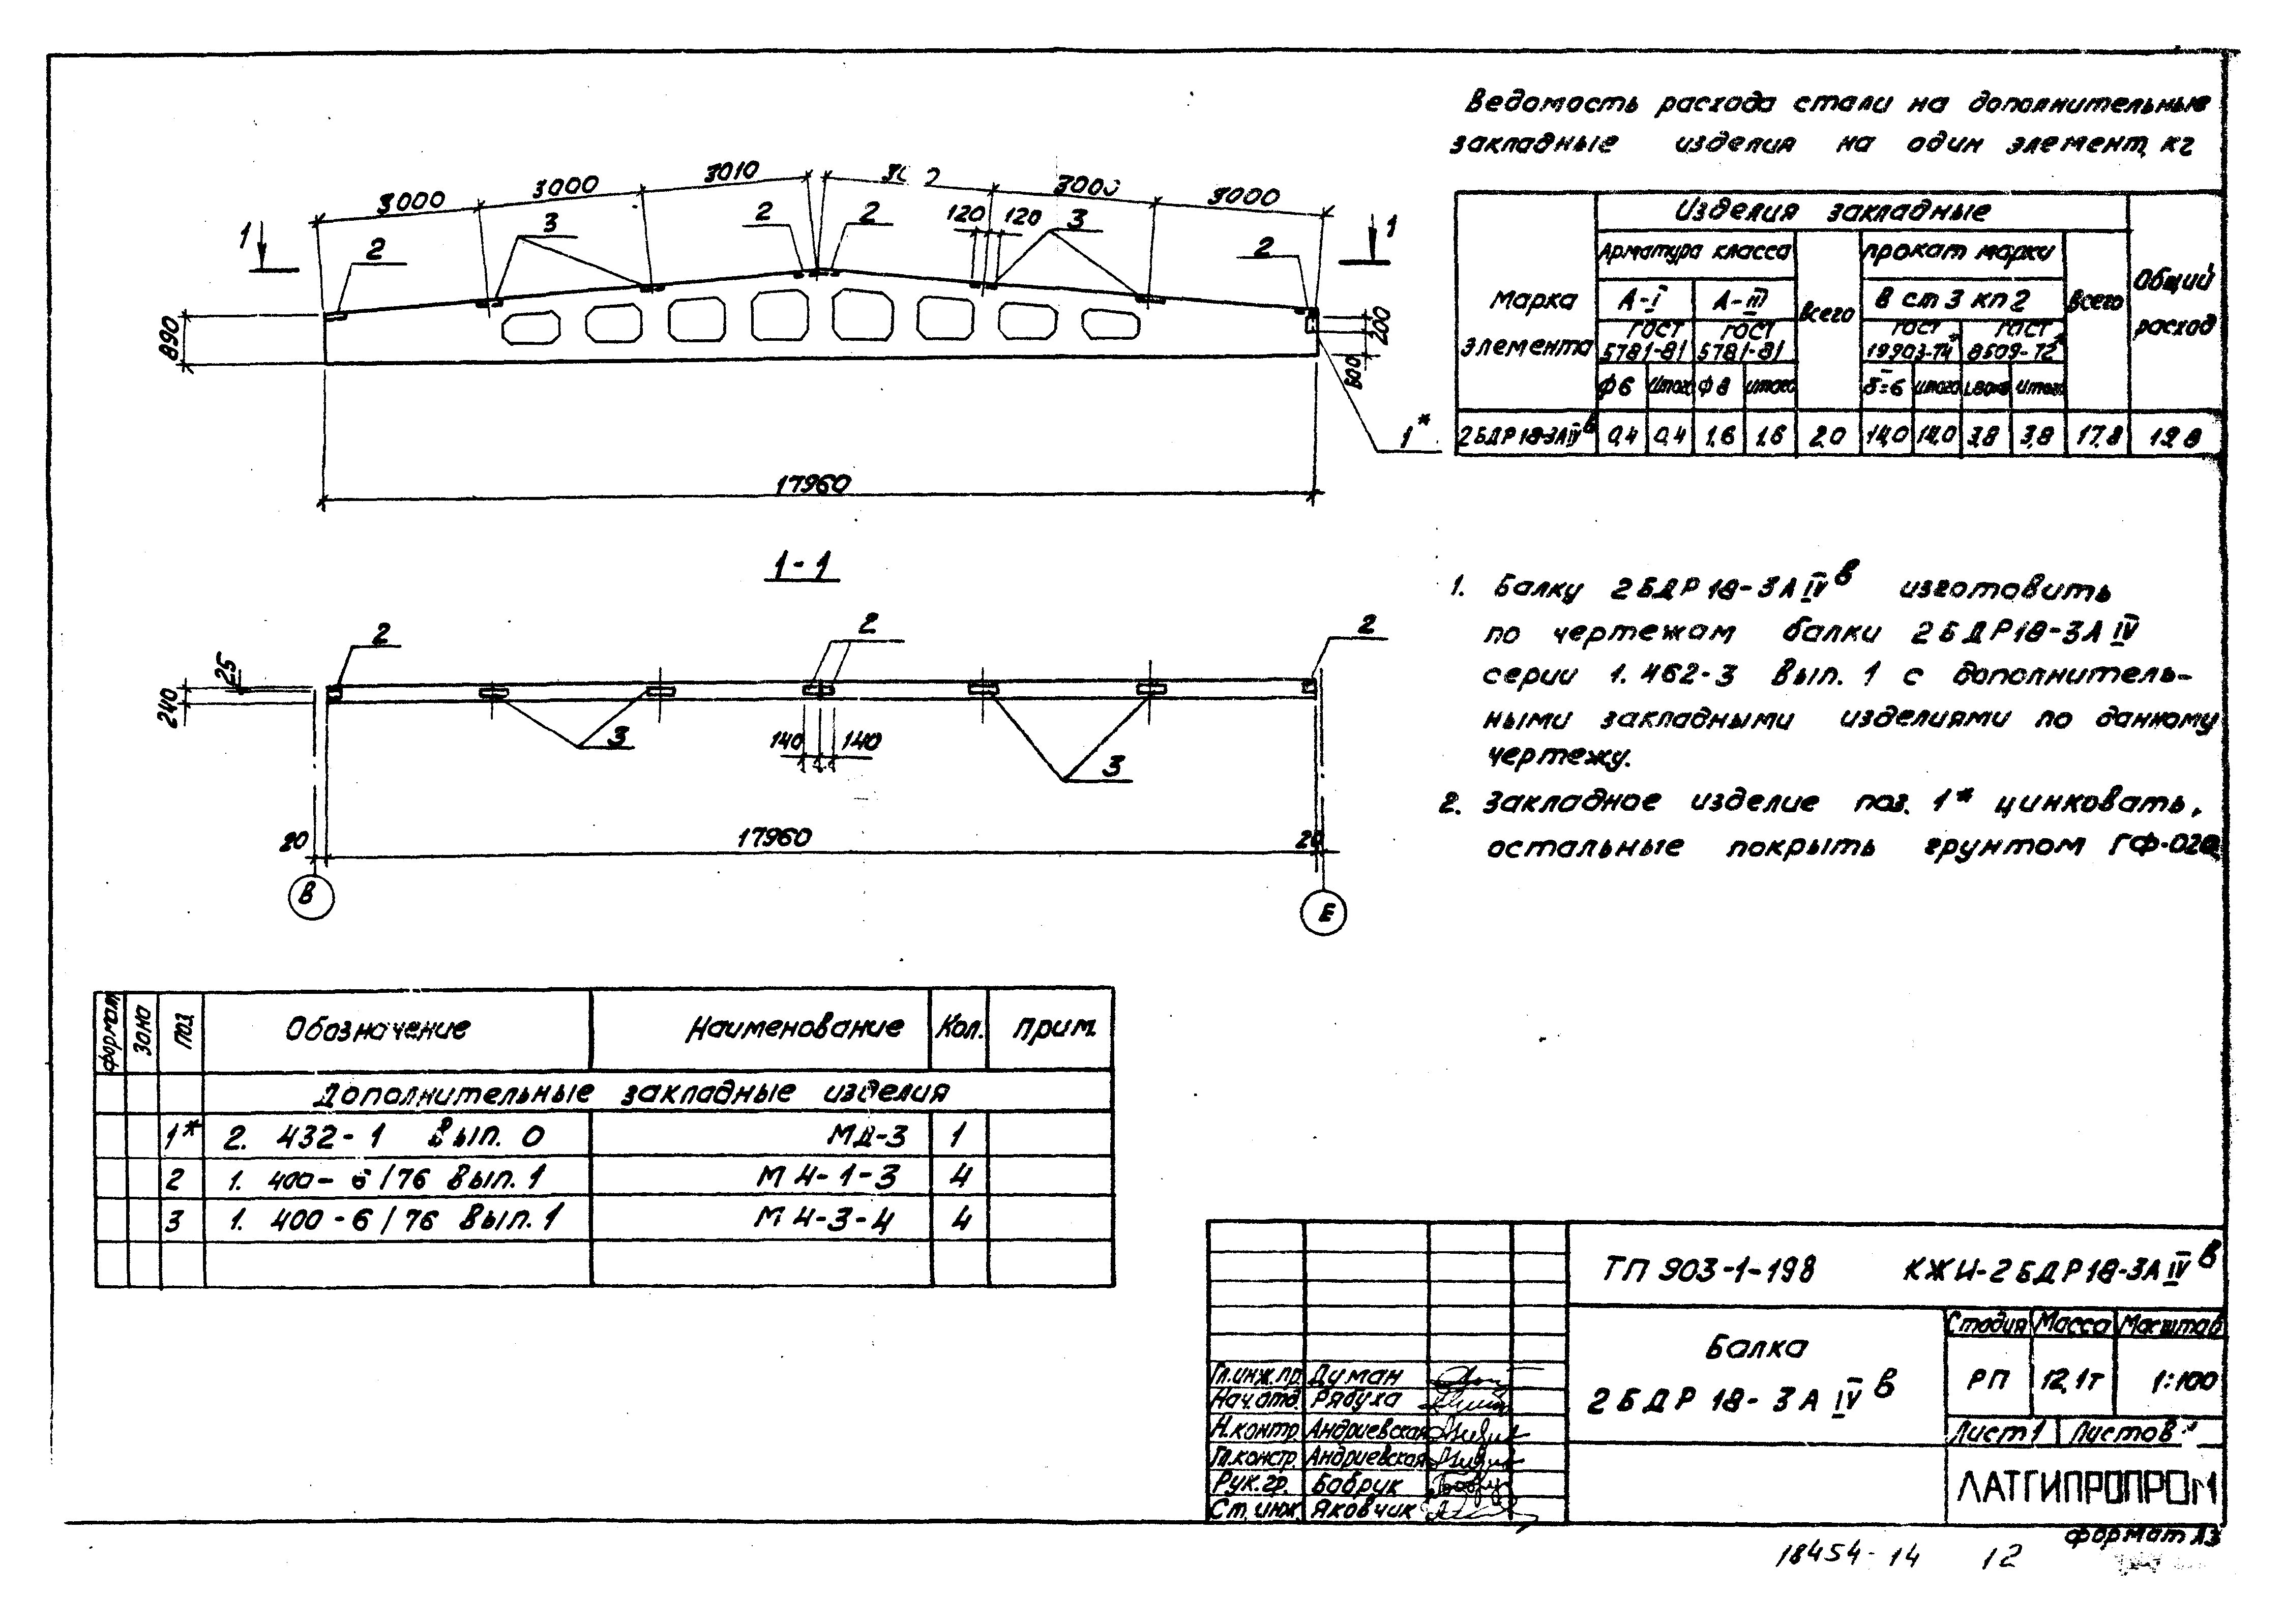 Ведомость расхода стали на дополнительные
закладные изделия на один элемент, кг
Марка элемента
Изделия закладные
Общий расход
Арматура класса
всего
прокат марки
всего
А-I А-III
В ст 3 кп 2
ГОСТ 5781-81 ГОСТ 5781-81
ГОСТ 19903-74* ГОСТ 8509-72*
Ф6 Итого Ф8 Итого δ=6 Итого Итого
2БДР18-3АIVв 0,4 0,4 1,6 1,6 2,0 14,0 14,0 3,8 3,8 17,8 19,8
3000 3000 3010 3000 3000
1 2 3 2 2 120 120 3 2 1
890 200 600
1*
17960
1-1
2 2 2
25
240
3 140 140 3
20 17960 20
В Е
1. Балку 2БДР18-3АIVв изготовить
по чертежам балки 2БДР18-3АIV
серии 1.462-3 Вып. 1 с дополнитель-
ными закладными изделиями по данному
чертежу.
2. Закладное изделие поз. 1* цинковать,
остальные покрыть грунтом ГФ-020
формат Зона Поз. Обозначение Наименование Кол. Прим.
Дополнительные закладные изделия
1* 2. 432-1 Вып. 0 МД-3 1
2 1. 400-6/76 Вып. 1 М 4-1-3 4
3 1. 400-6/76 Вып. 1 М 4-3-4 4
ТП 903-1-198 КЖИ-2БДР18-3АIVв
Балка
2БДР 18-3АIVв
Стадия Масса Масштаб
РП 12,1т 1:100
Лист 1 Листов 1
ЛАТГИПРОПРОМ
Гл.инж.пр. Думан
Нач.отд. Рябуха
Н.контр. Андриевская
Гл.констр. Андриевская
Рук.гр. Бабрук
Ст.инж. Яковчик
формат А3
18454-14 12